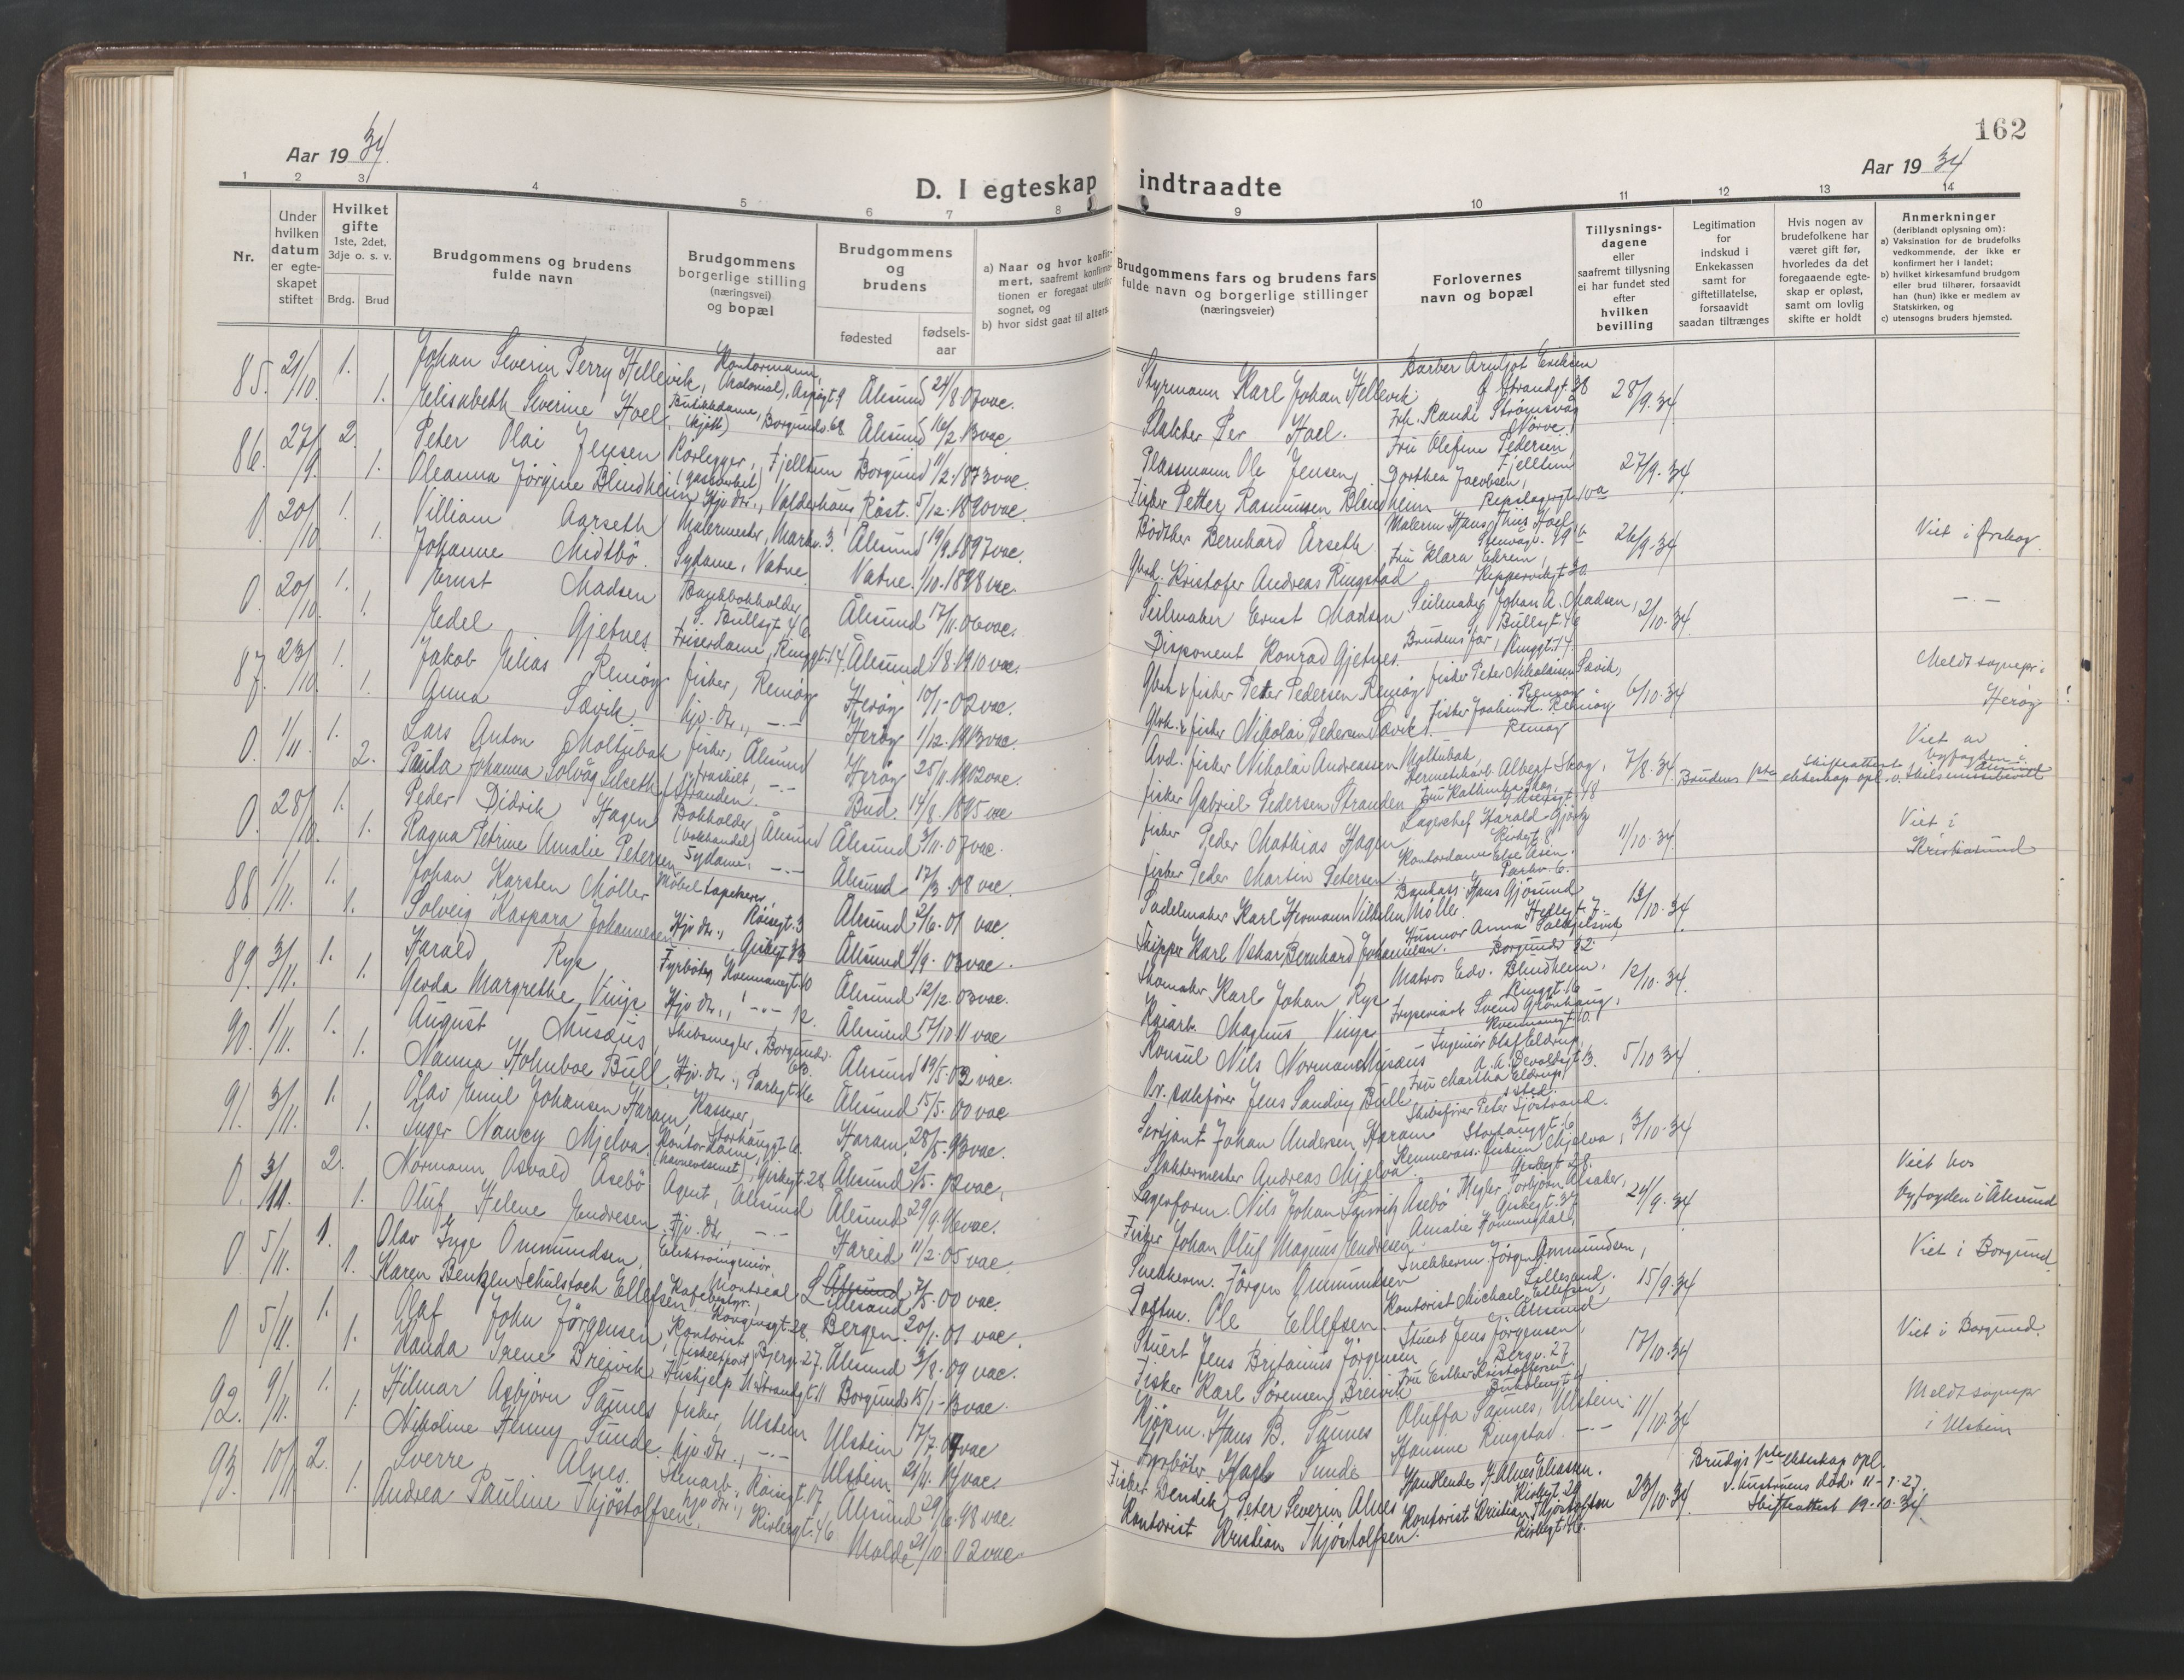 162
Aar 1934.
Aar 1934
D. I egteskap indtraadte
1 2 3 4 5 6 7 8 9 10 11 12 13 14
Nr.
Under hvilken datum er egteskapet stiftet
Hvilket gifte 1ste, 2det, 3dje o. s. v.
Brdg. Brud
Brudgommens og brudens fulde navn
Brudgommens borgerlige stilling (næringsvei) og bopæl
Brudgommens og brudens
fødested fødsels-aar
a) Naar og hvor konfirmert, saafremt konfirmationen er foregaat utenfor sognet, og
b) hvor sidst gaat til alters.
Brudgommens fars og brudens fars fulde navn og borgerlige stillinger (næringsveier)
Forlovernes navn og bopæl
Tillysningsdagene eller saafremt tillysning ei har fundet sted efter hvilken bevilling
Legitimation for indskud i Enkekassen samt for giftetillatelse, forsaavidt saadan tiltrænges
Hvis nogen av brudefolkene har været gift før, hvorledes da det foregaaende egteskap er opløst, samt om lovlig skifte er holdt
Anmerkninger (deriblandt oplysning om):
a) Vaksination for de brudefolks vedkommende, der ikke er konfirmert her i landet;
b) hvilket kirkesamfund brudgom eller brud tilhører, forsaavidt han (hun) ikke er medlem av Statskirken, og
c) utensogns bruders hjemsted.
85. 21/10. 1. Johan Severin Perry Hellevik, Kontormann, Aspøgt. 9 Ålesund 24/8 07 vac. Styrmann Karl Johan Hellevik Barber Arnljot Eriksen Strandgt. 38 28/9.34
1. Elisabeth Severine Hoel, Butikkdame, (kjøtt) Borgundv. 68 Ålesund 16/2 13 vac. Slakter Per Hoel. Frk. Randi Strømsvåg Nørve.
86. 27/9. 2. Peter Olai Jensen Rørlegger, Fjelltun Borgund 11/2. 1873 vac. Plassmann Ole Jensen Fru Olefine Pedersen, Fjelltun 27/9.34
1. Oleanna Jörgine Blindheim (gassverket) Hjv. dtr., Valderhaug Röst. 5/12. 1890 vac. Fisker Petter Rasmussen Blindheim Dorthea Jacobsen, Repslagergt. 10a
0. 20/10 1. Villiam Aarseth Malermester, Markv. 3. Ålesund 19/9. 1897 vac. Bödtker Bernhard Årseth Malerm. Hans Thiis Hoel, 26/9.34 Viet i Ørskog.
1. Johanne Midtbö. Sydame, Vatne. Vatne. 1/10. 1898 vac. Gbrk. Kristofer Andreas Ringstad Fru Klara Ekrem, Kippervikgt 20
0. 20/10. 1. Ernst Madsen Bankbokholder, Bullsgt. 46 Ålesund 17/11. 06 vac. Seilmaker Ernst Madsen Seilmaker Johan A. Madsen, Bullsgt. 46 2/10.34 — · —
1. Edel Gjetnes Friserdame, Ringgt. 14. Ålesund 1/8. 1910 vac. Disponent Konrad Gjetnes. Brudens far, Ringgt. 14.
87. 23/10. 1. Jakob Elias Remöy fisker, Remöy Heröy 10/1-02 vac. Gbrk. & fisker Peter Pedersen Remöy fisker Peter Nikolaisen Sævik, Remöy 6/10.34 Meldt sognepr i Heröy
1. Anna Sævik. hjv. dtr., — · — Heröy 1/12. 1913 vac. Gbrk. & fisker Nikolai Pedersen Sævik. fisker Joakim K. Remöy Remöy
0. 1/11. 1. Lars Anton Moltubak fisker, Ålesund Heröy 25/11. 1902 vac. Avd. fisker Nikolai Andreassen Moltubak, Hermetikarb. Albert Skog, 7/8.34. Viet av byfogden i Ålesund
2. Paula Johanna Solvåg Selseth f. Stranden. fraskilt, — · — Bud. 14/8. 1895 vac fisker Gabriel Pedersen Stranden Fru Kathinka Skog, Brudens 1ste ekteskap opl. v. Skilsmissebevill Skifteattest
0. 28/10. 1. Peder Didrik Hagen Bokholder, (bokhandel) Ålesund Ålesund 3/11. 07 vac. fisker Peder Mathias Hagen Lagerchef Harald Gjörtz Kirkegt. 8. 11/10.34 Viet i Kristiasund
1. Ragna Petrine Amalie Petersen Sydame, — · — Ålesund 17/3. 08 vac. fisker Peder Martin Petersen. Kontordame Else Åsen. Parkv. 6.
88 1/11. 1. Johan Karsten Möller Möbeltapetserer, Röisegt. 3 Ålesund 2/6. 01 vac. Sadelmaker Karl Hermann Vilhelm Möller. Bankass. Hans Gjösund 13/10.34
1. Solveig Kaspara Johannesen Hjv dtr., Giskegt 33 Ålesund 4/9. 03 vac. Skipper Karl Oskar Bernhard Johannesen. Husmor Anna Borgundv 32.
89. 3/11. 1. Harald Rys Fyrböter, Kvennanegt. 10 Ålesund 12/12. 03 vac. Skomaker Karl Johan Rys Matros Edv. Blindheim. Ringgt. 16 12/10.34
1. Gerda Margrethe Vinje Hjv dtr., — · — 12. Ålesund 17/10 11 vac Kaiarb. Magnus Vinje Fryseriarb. Svend Grönhaug, Kvennanegt. 10.
90. 1/11. 1. August Musæus Skibsmegler, Borgundv. 63. Ålesund 19/5. 02 vac. Konsul Nils Norman Musæus Ingeniör Olaf Eldrup, A. A. Devoldsgt. 13. 5/10 34
1. Nanna Holmboe Bull, Hjv. dtr., Parkgt. 16 Ålesund 15/5. 00 vac Or. sakförer Jens Sandvig Bull Fru Martha Eldrup, sstd.
91. 3/11. 1. Olav Emil Johansen Haram, Kasserer, Storhauggt. 6. Haram, 28/5. 93 vac. Sersjant Johan Andersen Haram Skibsförer Peter Sjöstrand. Storhauggt. 6 3/10.34
1. Inger Nancy Mjelva. Kontordame, (havnevesenet), Giskegt. 28 Ålesund 2/5. 02 vac. Slaktermester Andreas Mjelva. Kemnerass. Mjelva, Giskegt 28.
0. 3/11. 2. Normann Osvald Åsebö Agent, Ålesund Ålesund 29/9. 96 vac. Lagerform. Nils Johan Åsebö Megler Torbjörn Alsaker, Giskegt. 37 24/9.34 Viet hos byfogden i Ålesund
1. Oluf Helene Endresen Hjv. dtr., — · — Hareid 11/2. 05 vac. Fisker Johan Oluf Magnus Endresen Amalie Hommedal,
0 5/11. 1. Olav Inge Ommundsen, Elektroingeniör Montreal Lillesand 7/5. 00 vac. Snekkerm. Jörgen Ommundsen Snekkerm Jörgen Ommundsen, Lillesand. 15/9.34 Viet i Borgund
1. Karen Bentzen Schulstock Ellefsen Kafebestyr., Kongensgt. 28. Bergen. 20/1. 01 vac. Postm. Ole Ellefsen Kontorist Michael Ellefsen, Ålesund
0 5/11. 1. Olaf John Jörgensen, Kontorist (fiskeexport), Bjergv. 27. Ålesund 3/8. 09 vac. Stuert Jens Britanius Jörgensen Stuert Jens Jörgensen, Bergv. 27 17/10.34 Viet i Borgund.
1. Wanda Irene Breivik Hushjelp N. Strandgt. 11 Borgund 15/1-13 vac. Fisker Karl Sörensen Breivik Fru Esther Kristoffersen.
92. 9/11. 1. Hilmar Asbjörn Saunes fisker, Ulstein Ulstein 17/7. 07 vac Kjöpm. Hans B. Saunes Oluffa Saunes, Ulstein. 11/10.34 Meldt sognepr i Ulstein
1. Nikoline Henny Sunde. hjv. dtr., — · — Ulstein. 21/11. 14 vac. Fyrböter Karl Sunde Hansine Ringstad. — · —
93. 10/11 2. Sverre Alnes. Stenarb., Röisegt. 17 Ålesund 29/6. 98 vac. Fisker Bendik Peter Severin Alnes Handlende K. Alnes Eliassen. Kirkegt 29 23/10.34. Brudgs 1ste ekteskap opl. v. hustruens död. 11-1-27. Skifteattest 19.10.34
1. Andrea Pauline Thjöstolfsen. hjv dtr., Kirkegt. 46 Molde 21/10. 02 vac. Kontorist Kristian Thjöstolfsen. Kontorist Kristian Thjöstolfsen Kirkegt. 46.